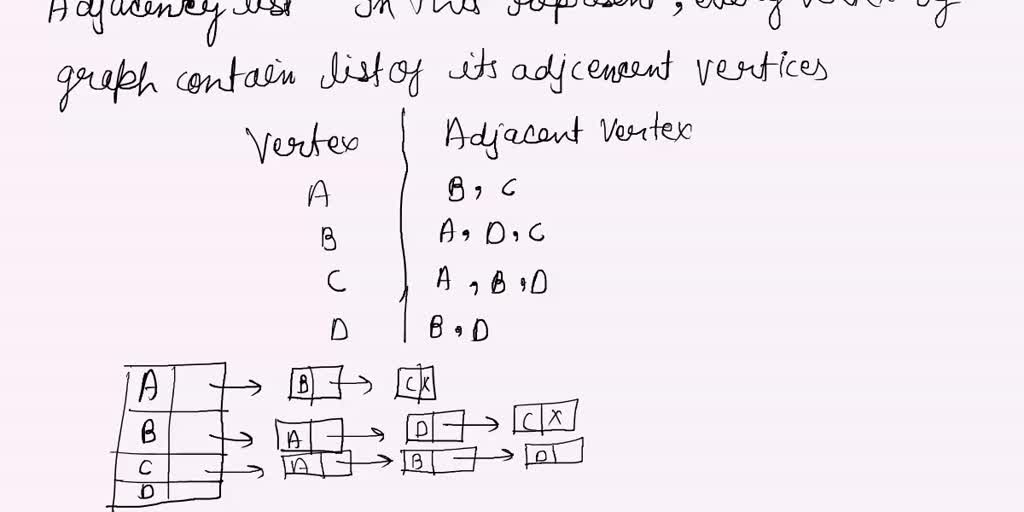 Adjacency list In this represent, every vertex of
graph contain list of its adjcencent vertices
Vertex Adjacent Vertex
A B, C
B A, D, C
C A, B, D
D B, D
A B C X
B A D C X
C A B D
D